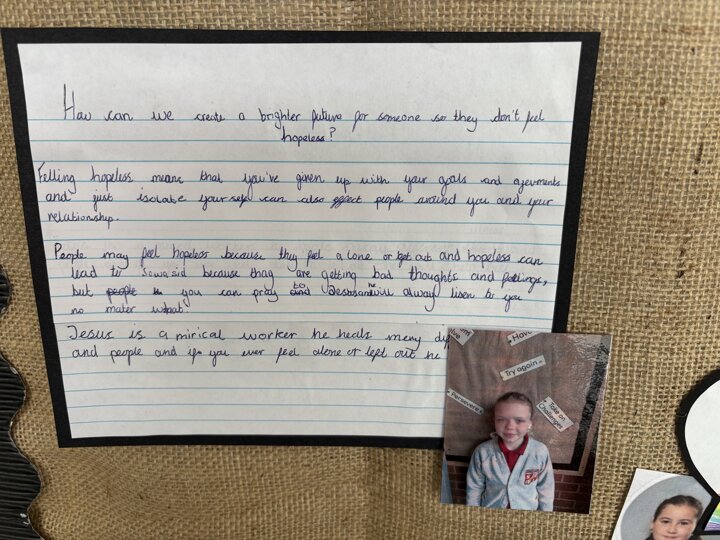 How can we create a brighter future for someone so they don't feel
hopeless?
Felling hopeless means that you've given up with your goals and ajevments
and just isolate yourself can also effect people around you and your
relationship.
People may feel hopeless because they feel a lone or left out and hopeless can
lead to sewasid because thay are getting bad thoughts and feelings,
but people you can pray to Jesus and he will alway lisen to you
no mater what.
Jesus is a mirical worker he heals meny
and people and if you ever feel alone or left out he
Have
Try again
Persevere
Take on
Challenges